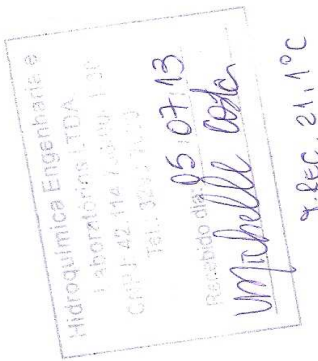 Hidroquímica Engenharia e
Laboratórios LTDA
Tel.:
Recebido dia: 05 07 13
Michelle Costa
T. REC. 21,1°C